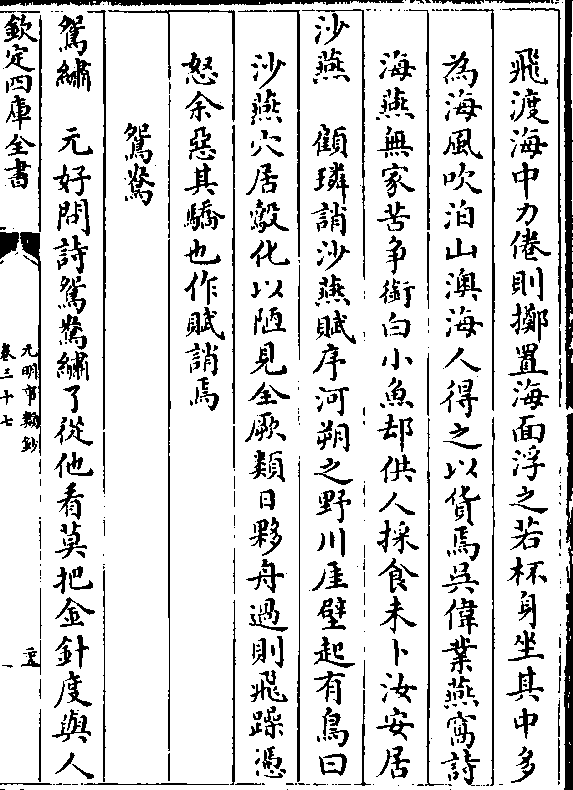 飛渡海中力倦則擲置海面浮之若杯身坐其中多
為海風吹泊山澳海人得之以貨焉吳偉業燕窩詩
海燕無家苦争銜白小魚却供人採食未卜汝安居
沙燕　顧璘誚沙燕賦序河朔之野川厓壁起有鳥曰
沙燕穴居鷇化以陋見全厥類日夥舟過則飛躁憑
怒余惡其驕也作賦誚焉
鴛鴦
鴛繡　元好問詩鴛鴦繡了從他看莫把金針度與人
欽定四庫全書
元明事類鈔
卷三十七